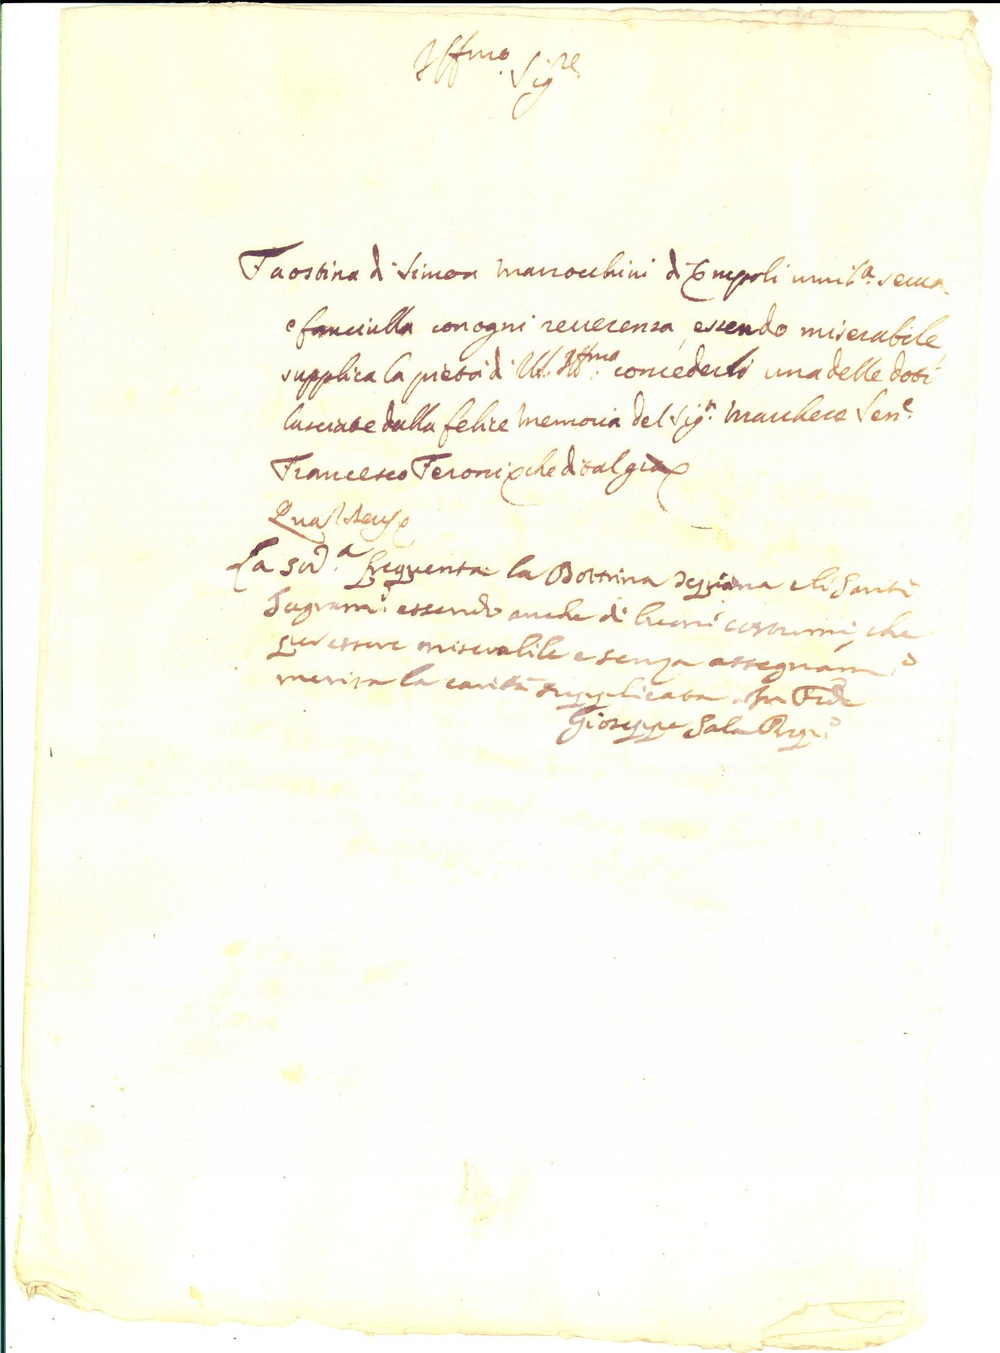 Illmo. Sigre
Faostina di Simon Marrocchini di Empoli umilª. serua
e fanciulla con ogni reuerenza, essendo miserabile,
supplica la pietà di VS. Illma. concederli una delle doti
lasciate dalla felice memoria del Sigr. Marchese Sene.
Francesco Feroni che di tal gra
Quam Deus
La sudª. frequenta la Dottrina e li Santi
Sagramti. essendo anche di buoni costumi, che
per essere miserabile e senza assegnamo.
merita la carità supplicata. In Fede
Giuseppe Sala